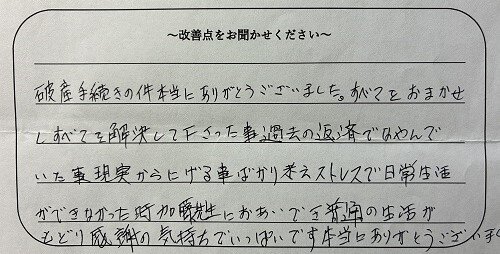 ～改善点をお聞かせください～
破産手続きの件本当にありがとうございました。すべてをおまかせ
しすべてを解決して下さった事過去の返済でなやんで
いた事現実からにげる事ばかり考えストレスで日常生活
ができなかった時加藤先生におあいでき普通の生活が
もどり感謝の気持ちでいっぱいです本当にありがとうございまし